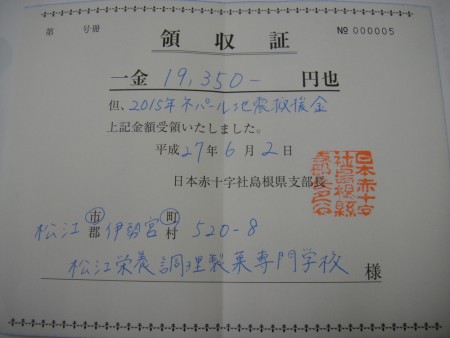 第 号冊 № 000005
領収証
一金 19,350- 円也
但、2015年ネパール地震救援金
上記金額受領いたしました。
平成27年6月2日
日本赤十字社島根県支部長
日本赤十字
社島根縣
松江市郡伊勢宮町村520-8
松江栄養調理製菓専門学校 様